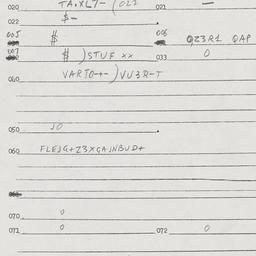 020 TA.XL7- (021 021 —
022 $-
005 $ 006 QZ3R1 QAP
007 $ )STUF xx 033 0
040 VARTO-+-)VU3R-T
050 JO
060 FLEJG+Z3XGAJNBUD+
070 0
071 0 072 0